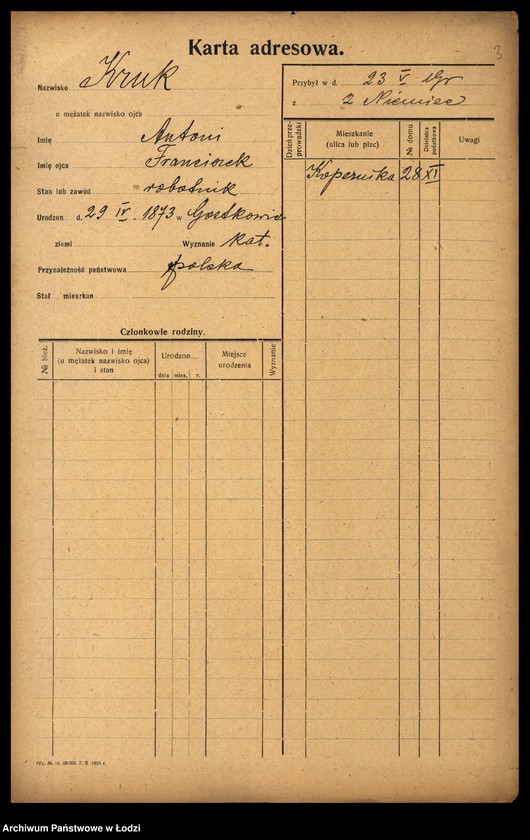 3
Karta adresowa.
Nazwisko Kruk
u mężatek nazwisko ojca
Imię Antoni
Imię ojca Franciszek
Stan lub zawód robotnik
Urodzon d. 29 IV. 1873 w Gostkowie
ziemi Wyznanie kat.
Przynależność państwowa polska
Stał mieszkan
Przybył w d. 23 V
z z Niemiec
Dzień przeprowadzki
Mieszkanie (ulica lub plac)
№ domu
Dzielnica podatkowa
Uwagi
Kopernika 28 XI
Członkowie rodziny.
№ bież.
Nazwisko i imię
(u mężatek nazwisko ojca)
i stan
Urodzon...
dnia mies. r.
Miejsce
urodzenia
Wyznanie
Archiwum Państwowe w Łodzi